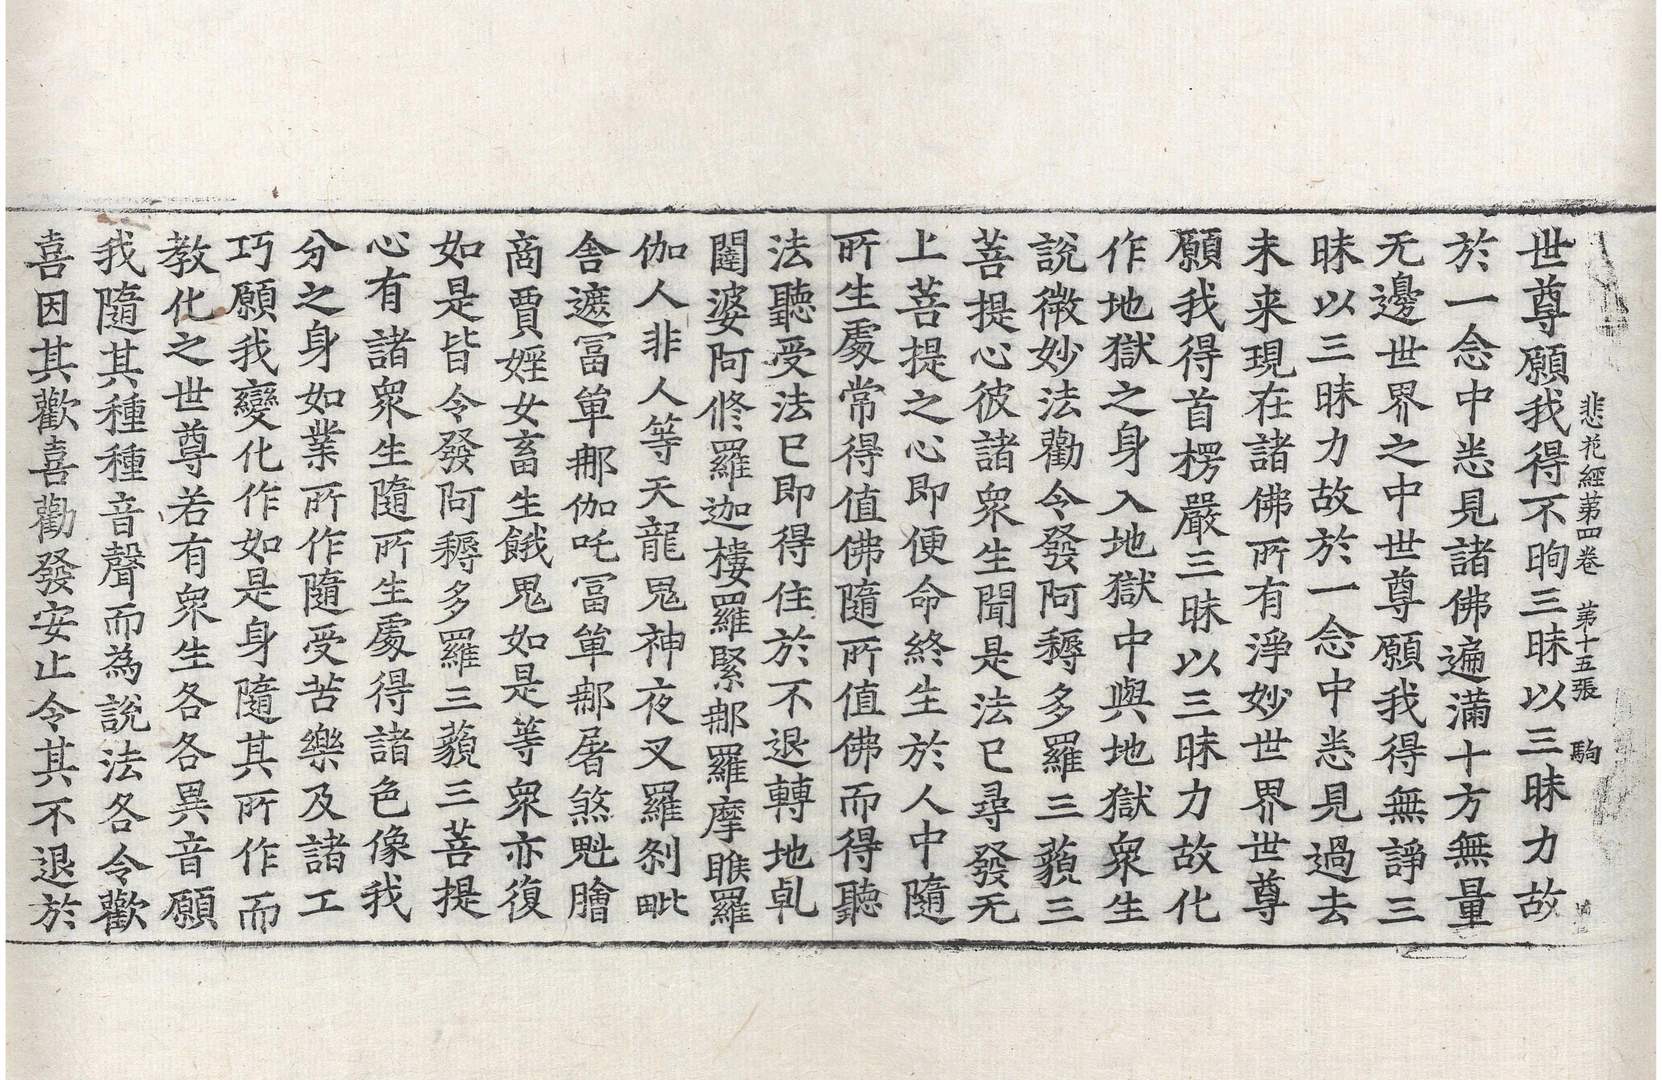 悲花經第四卷　第十五張　駒
世尊願我得不眴三昧以三昧力故
於一念中悉見諸佛遍滿十方無量
无邊世界之中世尊願我得無諍三
昧以三昧力故於一念中悉見過去
未来現在諸佛所有淨妙世界世尊
願我得首楞嚴三昧以三昧力故化
作地獄之身入地獄中與地獄衆生
說微妙法勸令發阿耨多羅三藐三
菩提心彼諸衆生聞是法已尋發无
上菩提之心即便命終生於人中隨
所生處常得值佛隨所值佛而得聽
法聽受法已即得住於不退轉地乹
闥婆阿修羅迦樓羅緊那羅摩睺羅
伽人非人等天龍鬼神夜叉羅刹毗
舍遮冨單那伽吒冨單那屠煞魁膾
商賈婬女畜生餓鬼如是等衆亦復
如是皆令發阿耨多羅三藐三菩提
心有諸衆生隨所生處得諸色像我
分之身如業所作隨受苦樂及諸工
巧願我變化作如是身隨其所作而
教化之世尊若有衆生各各異音願
我隨其種種音聲而為說法各令歡
喜因其歡喜勸發安止令其不退於